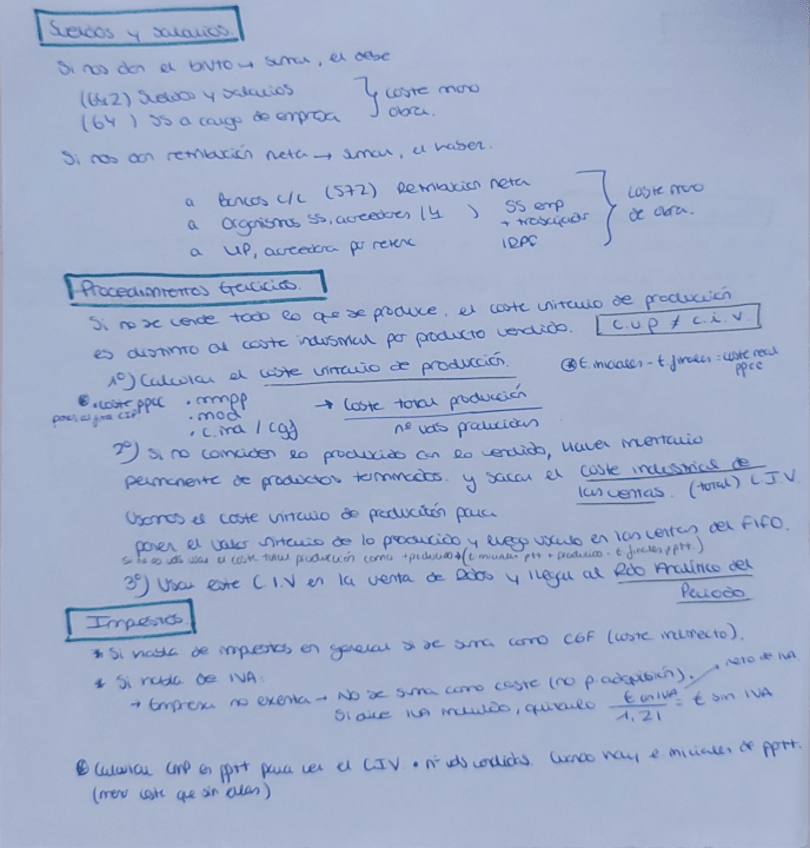 Sueldos y salarios.
Si nos dan el bruto → sumar, el debe
(642) Sueldos y salarios
(64 ) SS a cargo de empresa
coste mano obra.
Si nos dan retribución neta → sumar, el haber.
a Bancos c/c (572) Retribución neta
a Organismos SS, acreedores (4 ) SS emp + trabajador
a HP, acreedora por retenc IRPF
coste mano de obra.
Procedimientos Ejercicios.
Si no se vende todo lo que se produce, el coste unitario de producción
es distinto al coste industrial por producto vendido. C.U.P ≠ C.I.V.
1º) Calcular el coste unitario de producción.
E. iniciales - E. finales = coste real ppcc
coste ppcc
· mmpp
· mod
· c.ind / cgf
→ Coste total producción
nº uds producidas
2º) Si no coinciden lo producido con lo vendido, hacer inventario
permanente de productos terminados. y sacar el coste industrial de
las ventas. (total) C.I.V
Usamos el coste unitario de producción para
poner el valor unitario de lo producido y luego usarlo en las ventas del FIFO.
Si no es usar el coste total producción como + producido → (E. iniciales ptt + producido - E. finales pptt.)
3º) Usar este C I.V en la venta de Rdos y llegar al Rdo Analítico del
Periodo
Impuestos.
* Si habla de impuestos en general si se suma como CGF (coste indirecto).
* Si habla de IVA:
→ Empresa no exenta → No se suma como coste (no p. adquisición). → neto de IVA
Si dice IVA incluido, quitarlo € con IVA / 1,21 = € sin IVA
Calcular CMP en pptt para ver el CIV · nº uds vendidas. Cuando hay e iniciales de pptt.
(menor coste que sin ellas)